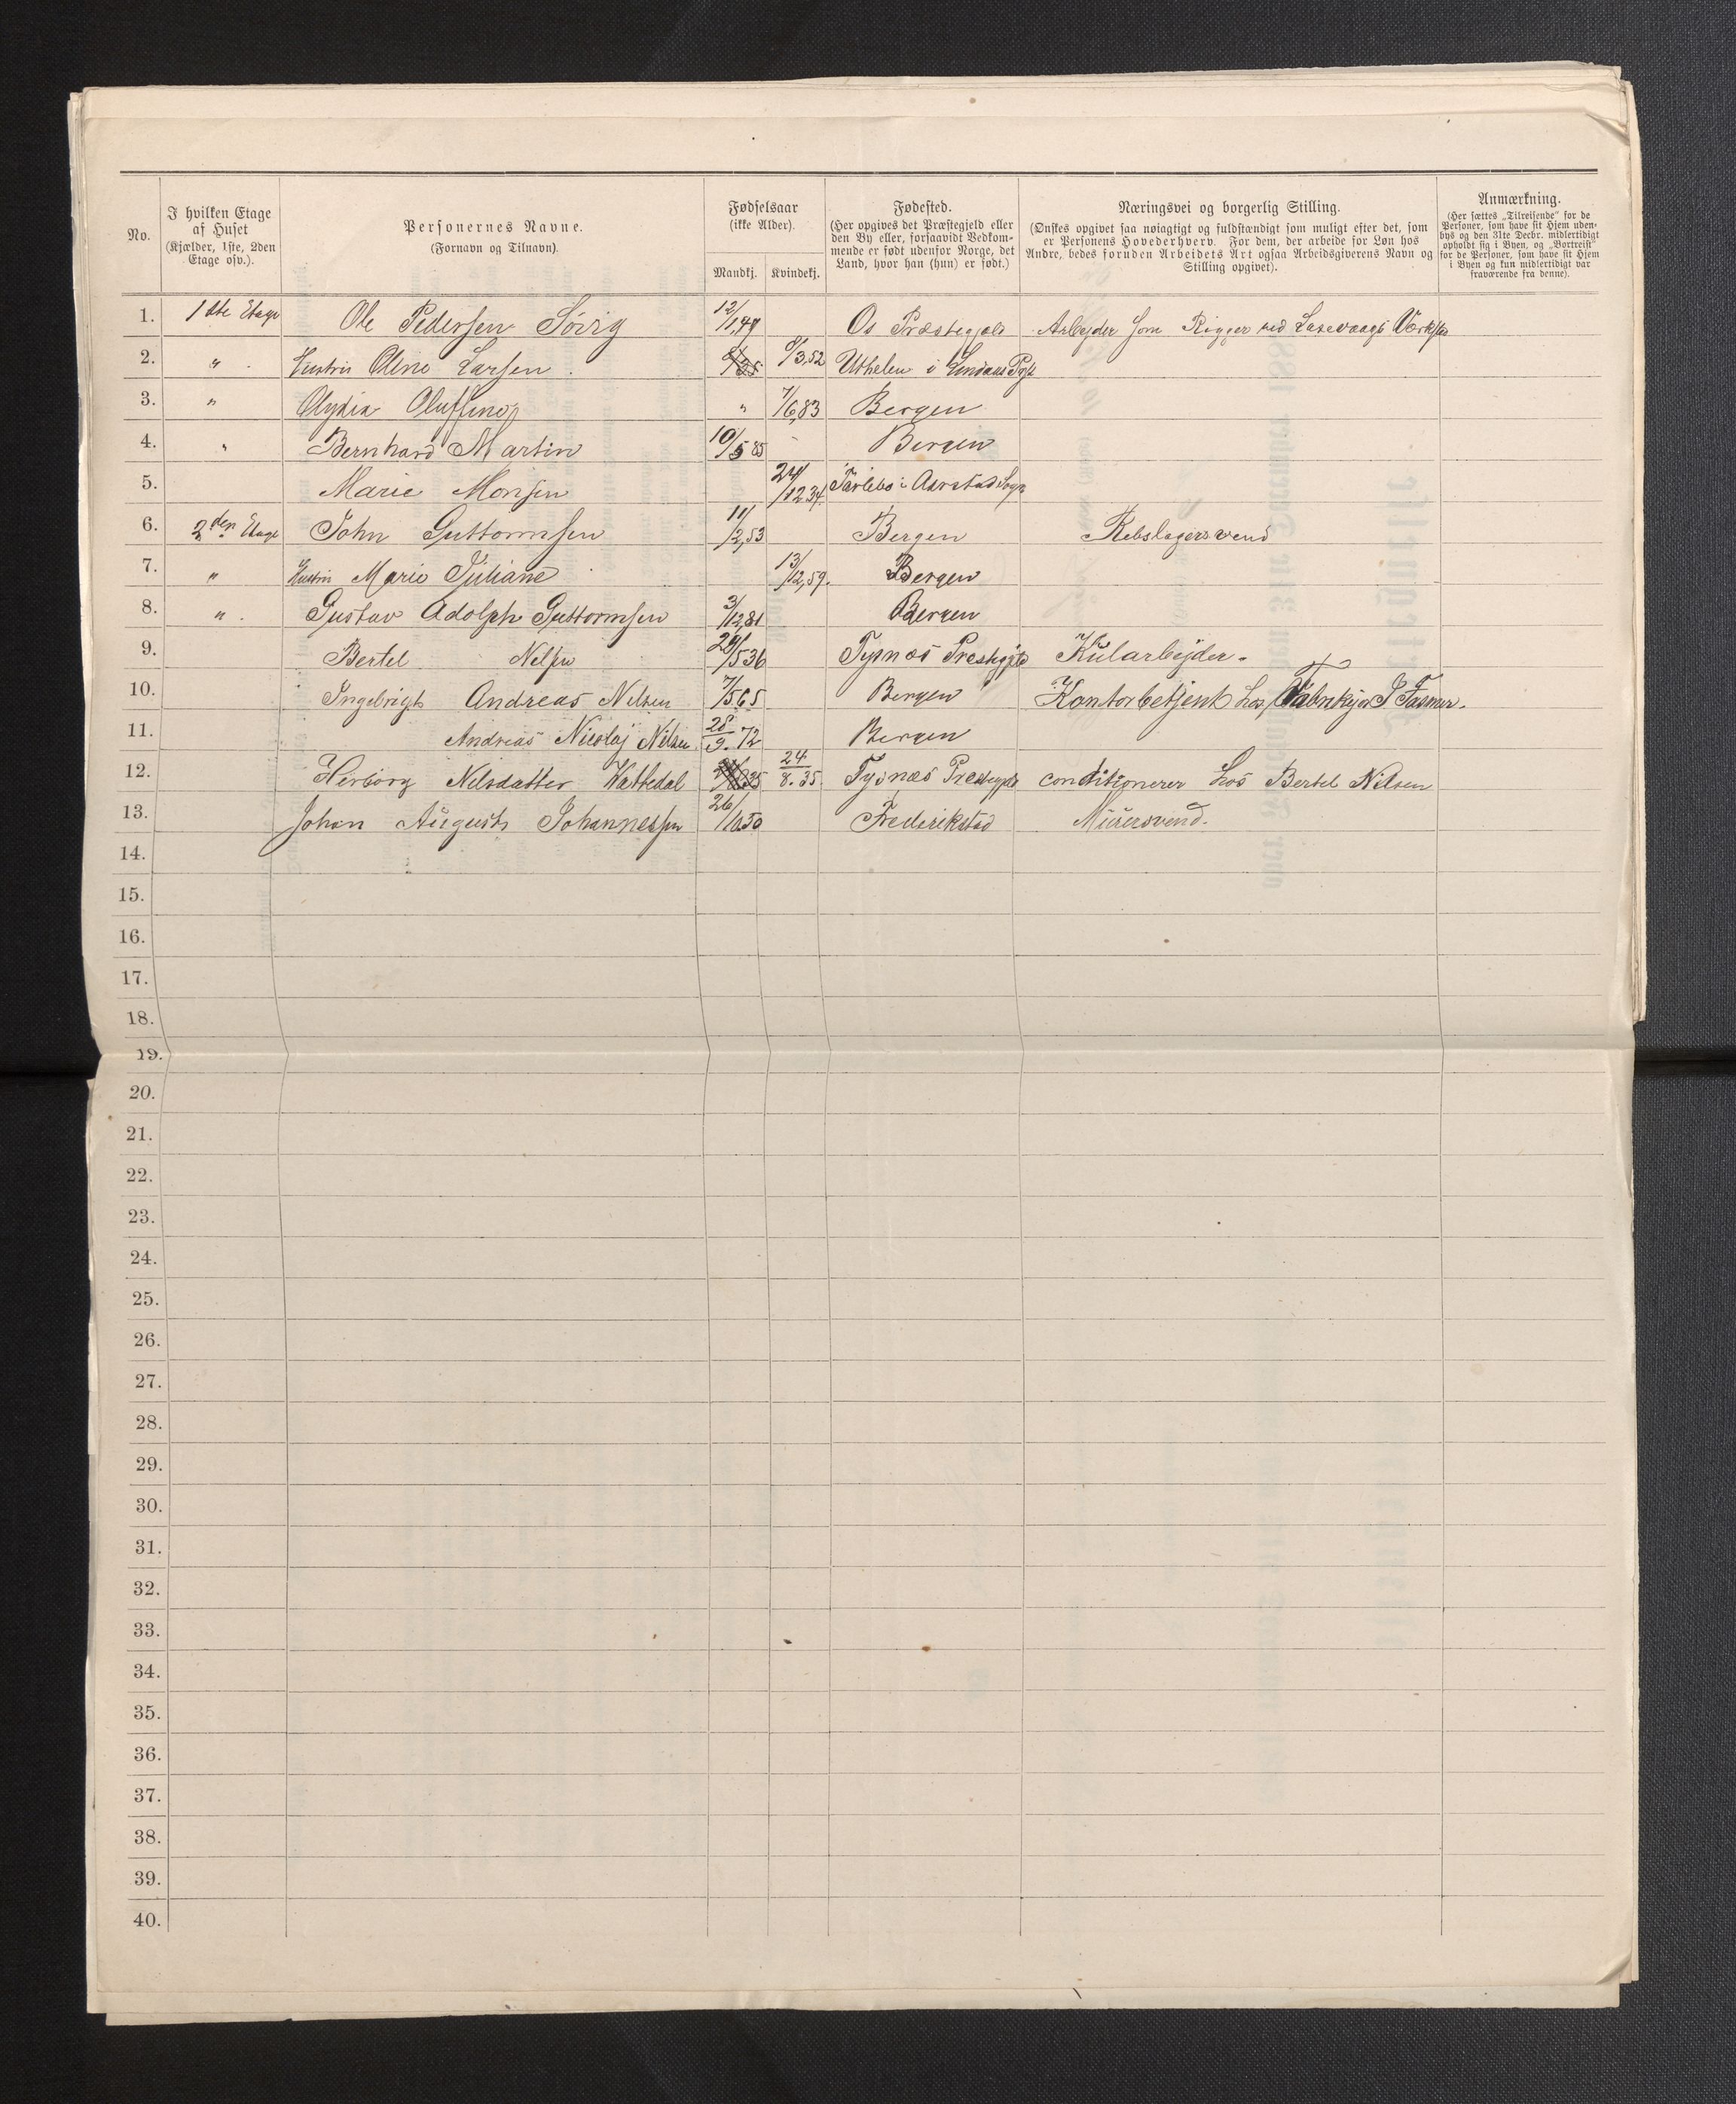 No.
I hvilken Etage af Huset (Kjælder, 1ste, 2den Etage osv.).
Personernes Navne. (Fornavn og Tilnavn).
Fødselsaar (ikke Alder).
Mandkj. Kvindekj.
Fødested. (Her opgives det Præstegjeld eller den By eller, forsaavidt Vedkommende er født udenfor Norge, det Land, hvor han (hun) er født.)
Næringsvei og borgerlig Stilling. (Ønskes opgivet saa nøiagtigt og fuldstændigt som muligt efter det, som er Personens Hovederhverv. For dem, der arbeide for Løn hos Andre, bedes foruden Arbeidets Art ogsaa Arbeidsgiverens Navn og Stilling opgivet).
Anmærkning. (Her sættes „Tilreisende" for de Personer, som have sit Hjem udenbys og den 31te Decbr. midlertidigt opholdt sig i Byen, og „Bortreist" for de Personer, som have sit Hjem i Byen og kun midlertidigt var fraværende fra denne).
1. 1ste Etage Ole Pedersen Søvig 12/1,49 Os Præstegjeld Arbejder som Rigger ved Laxevaags Værksted
2. " Hustru Olene Larsen 8/3,52 i Lindaas Prgld
3. " Olydia Oluffine " 7/6,83 Bergen
4. " Bernhard Martin 10/5 85 Bergen
5. Marie Monsen 24/12 34 i Aarstad Sogn
6. 2den Etage John Guttormsen 11/2,53 Bergen Rebslagersvend
7. " Hustru Marie Juliane 13/12,59. Bergen
8. " Gustav Adolph Guttormsen 3/12,81 Bergen
9. Bertel Nelsen 29/5 36 Tysnæs Prestegjeld Kularbejder.
10. Ingebrigt Andreas Nelsen 7/5 65 Bergen Kontorbetjent hos Fabrikejer J Fasmer.
11. Andreas Nicolaj Nilsen 28/9. 72 Bergen
12. Herborg Nelsdatter Vattedal 24/8.35. Tysnæs Prestegjeld conditionerer hos Bertel Nilsen
13. Johan August Johannessen 26/10 50 Frederikstad Murersvend.
14.
15.
16.
17.
18.
19.
20.
21.
22.
23.
24.
25.
26.
27.
28.
29.
30.
31.
32.
33.
34.
35.
36.
37.
38.
39.
40.